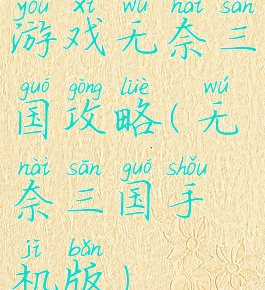 yóu xì wú nài sān
游戏无奈三
guó gōng lüè wú
国攻略(无
nài sān guó shǒu
奈三国手
jī bǎn
机版)